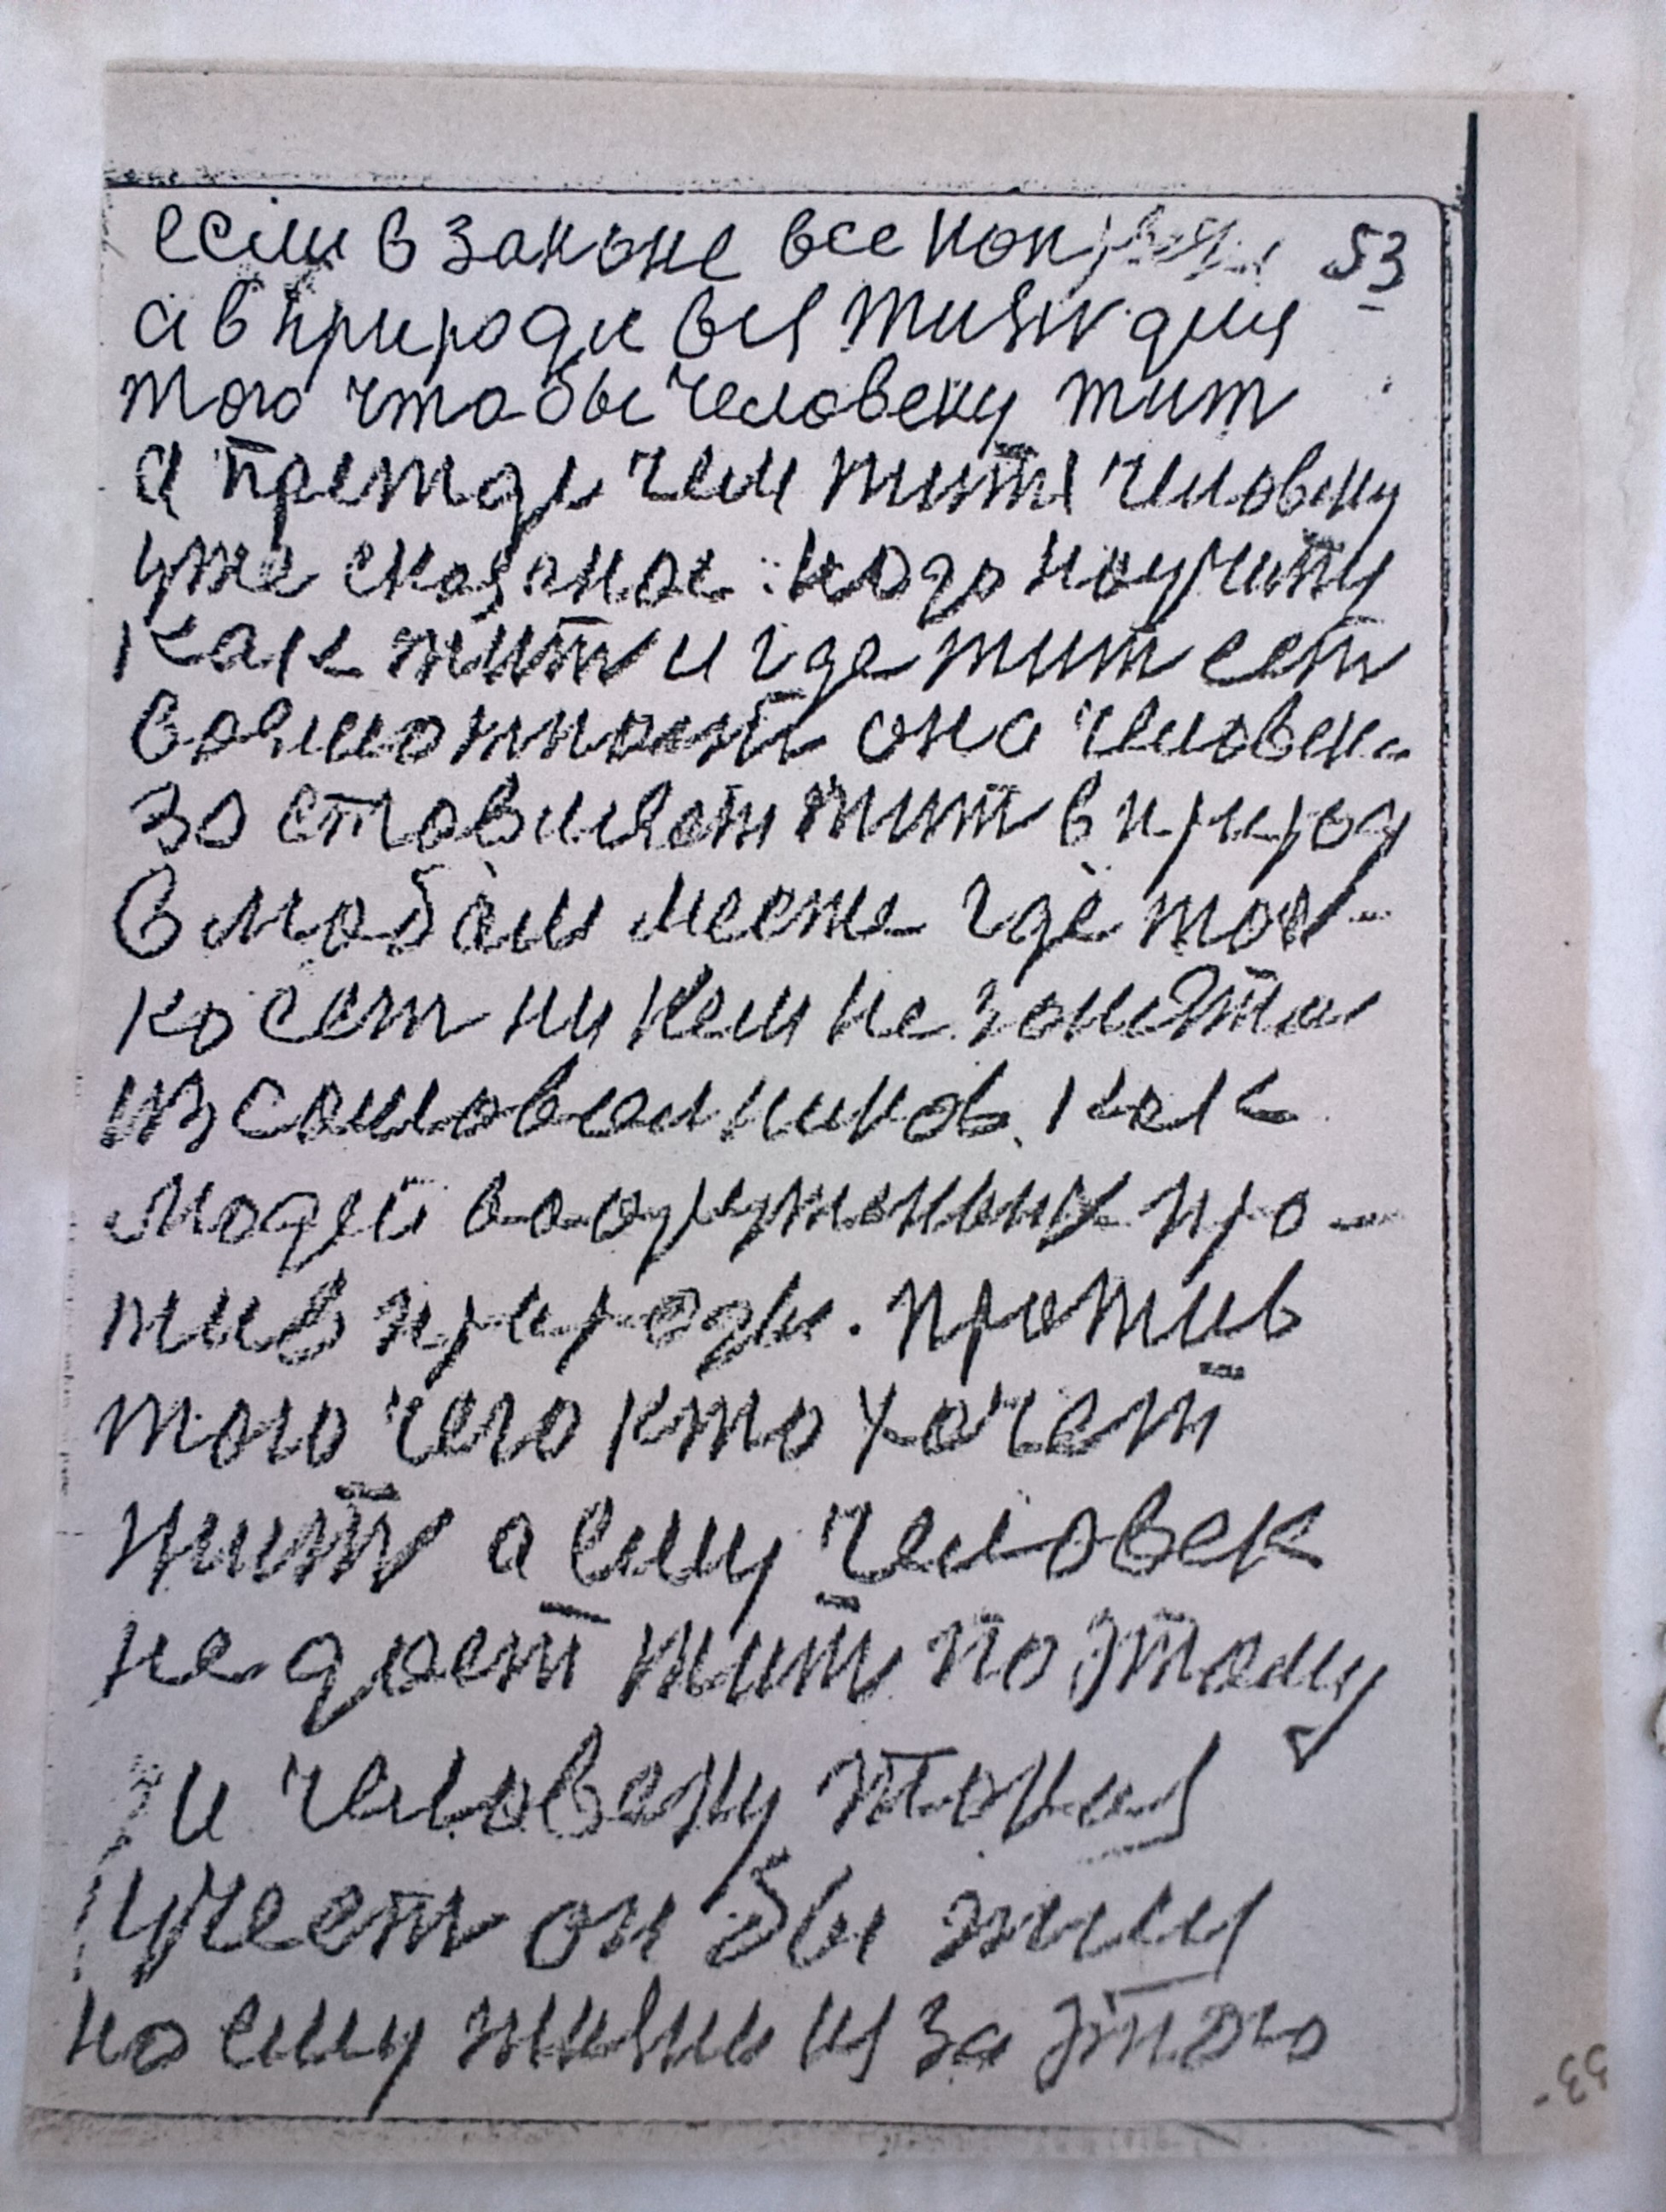 если в законе все 53
а в природи вся жизн для
того чтобы человеку жит
а прежде чем жить человеку
уже сказаное надо научину
как жит и где жит ест
возможност она человека
заставляет жит в природ
в любом месте где тол-
ко ест ни кем не занято
из сословников как
людей вооружоных про-
тив природы. против
того чего кто хочет
жит а ему человек
не дает жит поэтому
и человеку
он бы жил
но ему жизни из за этого
53